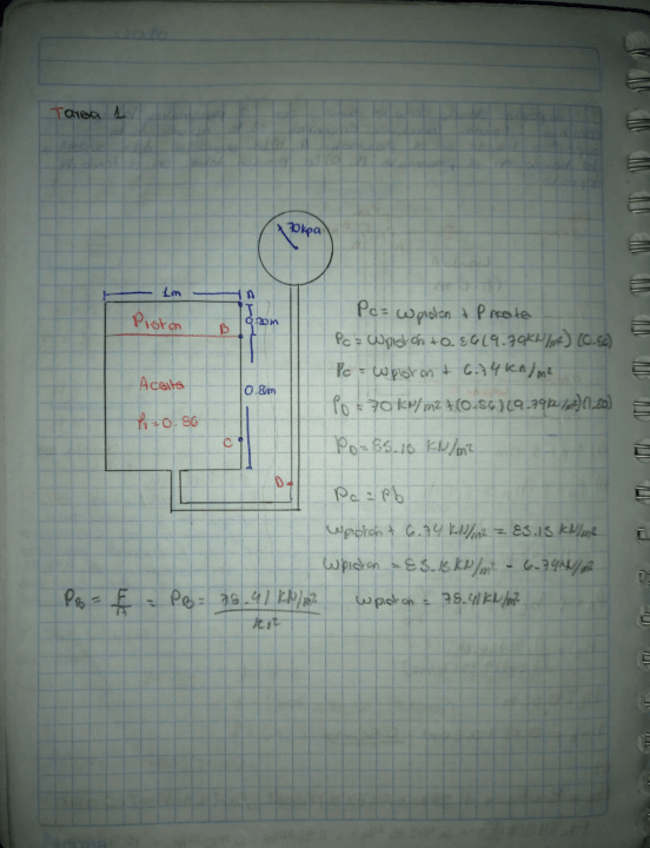 Tarea 1
70kpa
1m
A
Piston
B
0.20m
Aceite
0.80m
P1=0.86
C
D
Pc = wpiston + P aceite
Pc = wpiston + 0.86 (9.79KN/m²) (0.80)
Pc = wpiston + 6.74 KN/m²
PD = 70 KN/m² + (0.86) (9.79KN/m²) (1.80)
PD = 85.15 KN/m²
Pc = Pb
wpiston + 6.74 KN/m² = 85.15 KN/m²
wpiston = 85.15 KN/m² - 6.74KN/m²
wpiston = 78.41KN/m²
PB = F/A = PB = 78.41 KN/m² / πr²